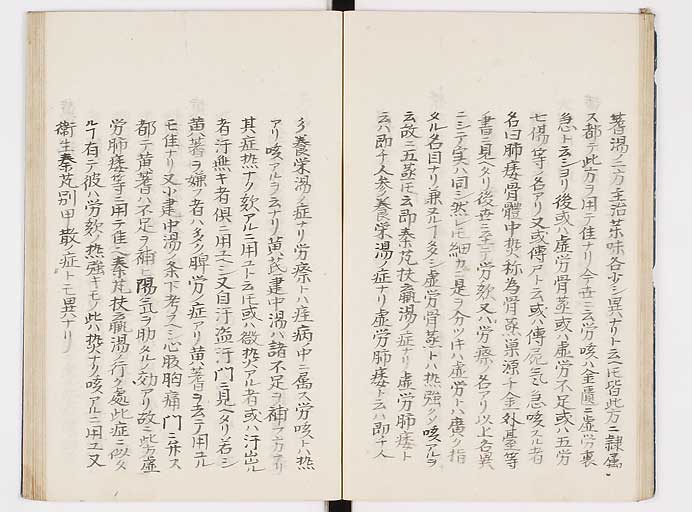 蓍湯ノ二方主治薬味各少シ異ナリト云𪜈皆此方ニ隷属
ス都テ此方ヲ用テ佳ナリ今世ニ云労咳ハ金匱ニ虚労裏
急ト云ヨリ後或ハ虚労骨蒸或ハ虚労不足或ハ五労
七傷等ノ名アリ又或傳尸ト云或ハ傳尸気急咳スル者
名曰肺痿骨髄中熱称為骨蒸巣源千金外臺等
書ニ見ヘタリ後世ニ至テ労欬又ハ労瘵ノ名アリ以上名異
ニシテ実ハ同シ然レ𪜈細カニ是ヲ分ツキハ虚労トハ廣ク指
タル名目ナリ兼ヌルヿ多シ虚労骨蒸トハ熱強クシ咳アルヲ
云故ニ五蒸𪜈云即秦艽扶羸湯ノ症ナリ虚労肺痿ト
云ハ即チ人参養栄湯ノ症ナリ虚労肺痿ト云ハ即チ人
参養栄湯ノ症ナリ労瘵トハ疰病中ニ属ス労咳トハ熱
アリ咳アルヲ云ナリ黄芪建中湯ハ諸不足ヲ補フ方ナリ
其症熱ナク欬アルニ用ユト云𪜈或ハ微熱アル者或ハ汗出ル
者汗無キ者俱ニ用ユヘシ又自汗盗汗門ニ見ヘタリ若シ
黄蓍ヲ嫌フ者ハ多ク脾労ノ症アリ黄蓍ヲ去テ用ユル
モ佳ナリ又小建中湯ノ条下考フヘシ心腹胸痛門ニ弁ス
都テ黄蓍ハ不足ヲ補ヒ陽気ヲ助クルノ効アリ故ニ此方虚
労肺痿等ニ用テ佳シ秦艽扶羸湯ノ行ク處此症ニ似タ
ルヿ有テ彼ハ労欬ノ熱強キモノ此ハ熱ナリ咳アルニ用ユ又
衛生秦艽別甲散ノ症トモ異ナリ